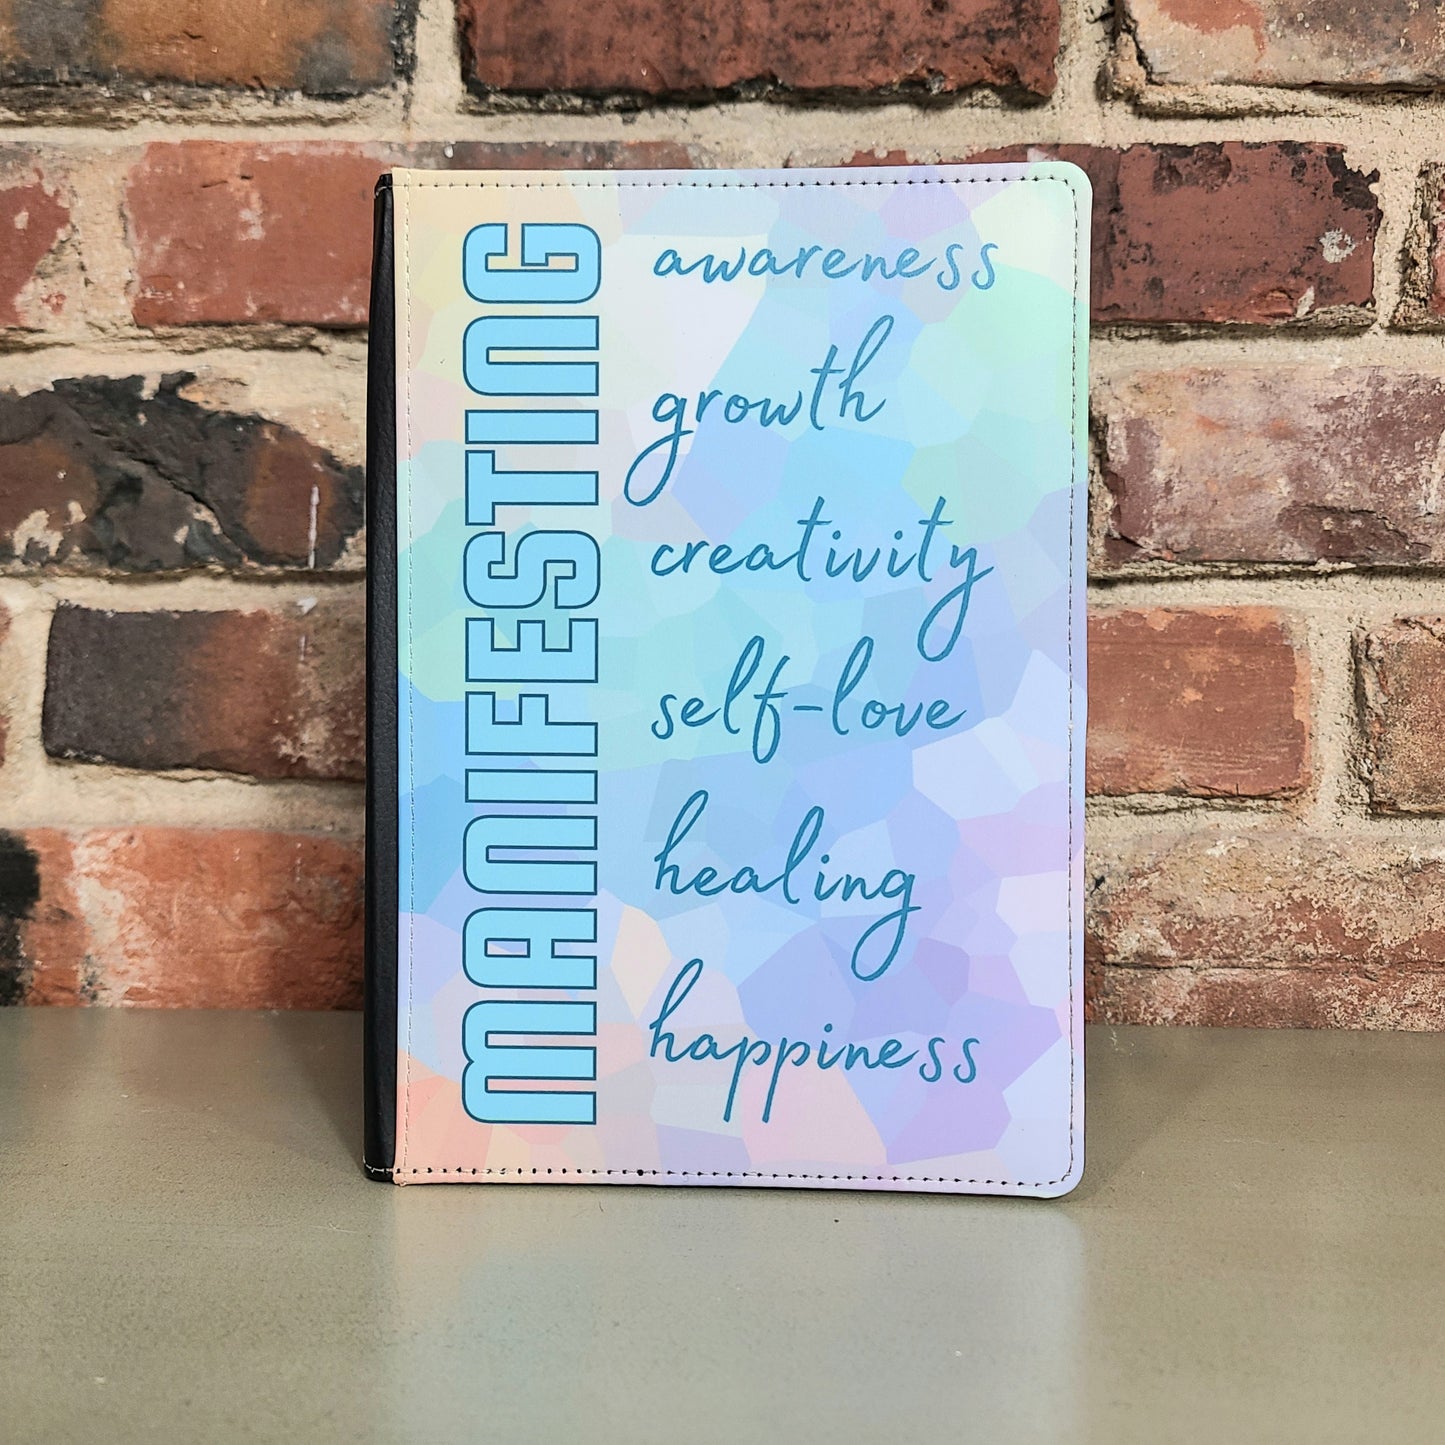 MANIFESTING
awareness
growth
creativity
self-love
healing
happiness